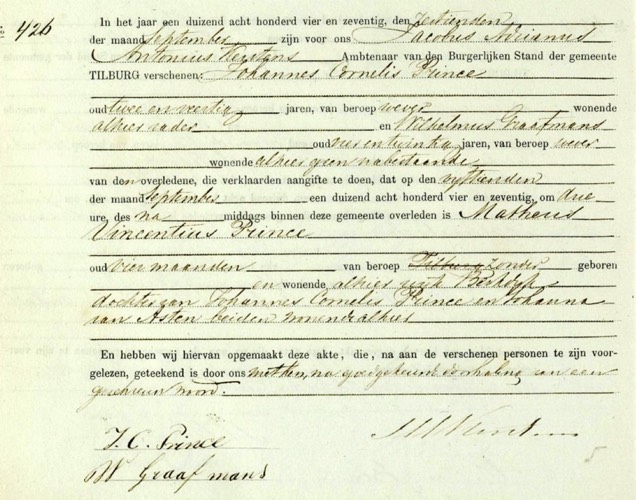 426
In het jaar een duizend acht honderd vier en zeventig, den zestienden
der maand september zijn voor ons Jacobus Adrianus
Antonius Ambtenaar van den Burgerlijken Stand der gemeente
TILBURG verschenen: Johannes Cornelis Prince
oud twee en veertig jaren, van beroep wever wonende
alhier vader en Wilhelmus Graafmans
oud vier en twintig jaren, van beroep wever
wonende alhier geen nabestaande
van den overledene, die verklaarden aangifte te doen, dat op den vijftienden
der maand september een duizend acht honderd vier en zeventig, om drie
ure, des na middags binnen deze gemeente overleden is Matheus
Vincentius Prince
oud vier maanden van beroep Tilburg zonder geboren
en wonende alhier wijk Berkdijk
dochter van Johannes Cornelis Prince en Johanna
van Asten beiden wonende alhier
En hebben wij hiervan opgemaakt deze akte, die, na aan de verschenen personen te zijn voor-
gelezen, geteekend is door ons met hen, na goedgekeurde doorhaling van een
geschreven woord.
J. C. Prince
W Graafmans